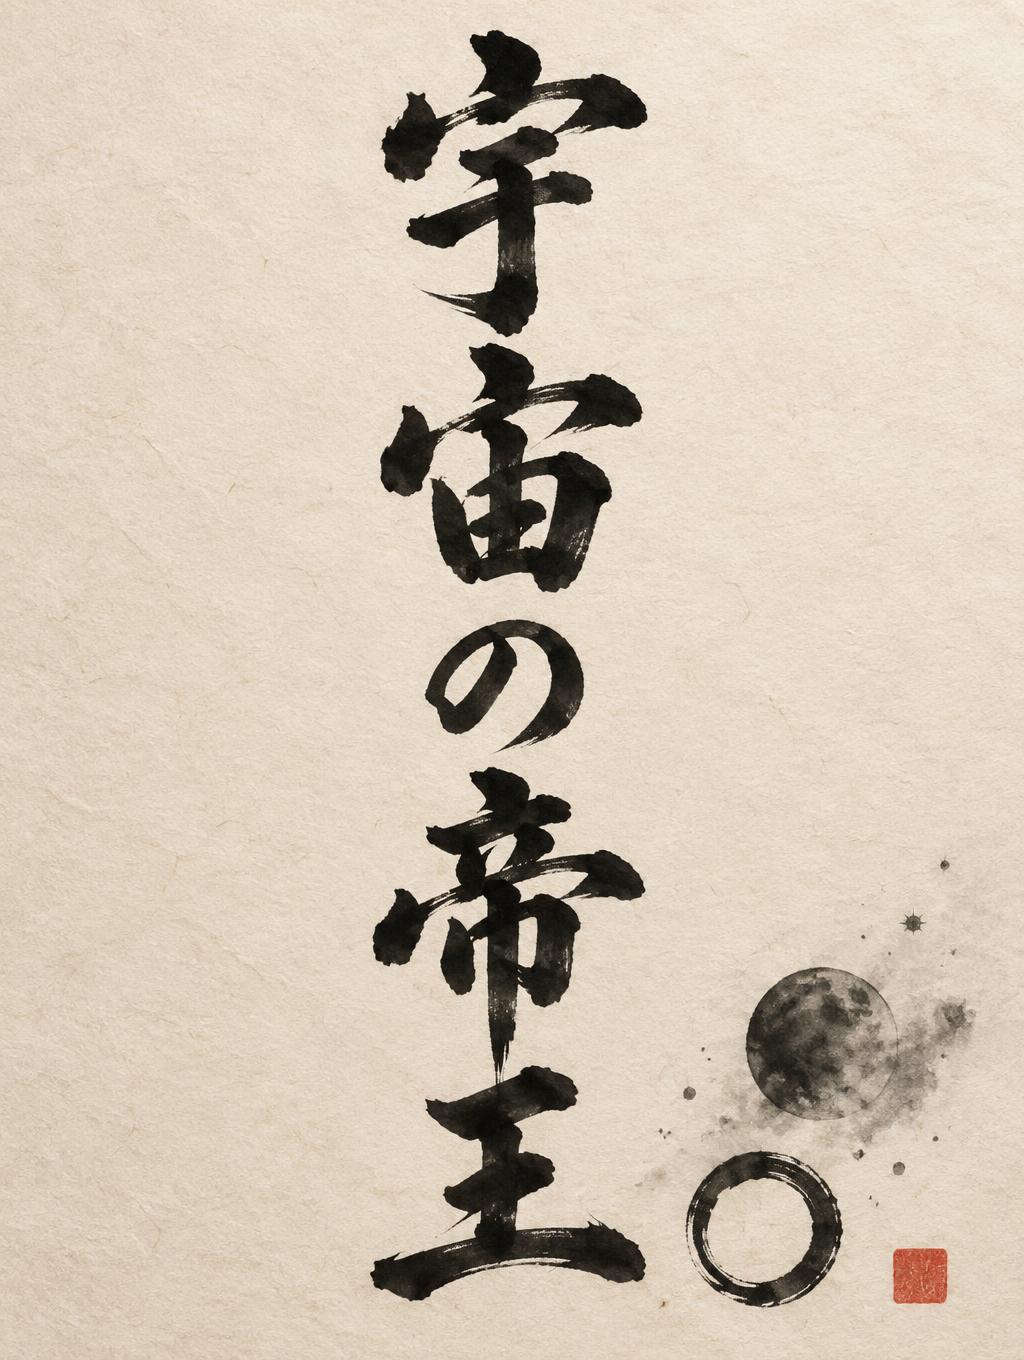 宇宙の帝王